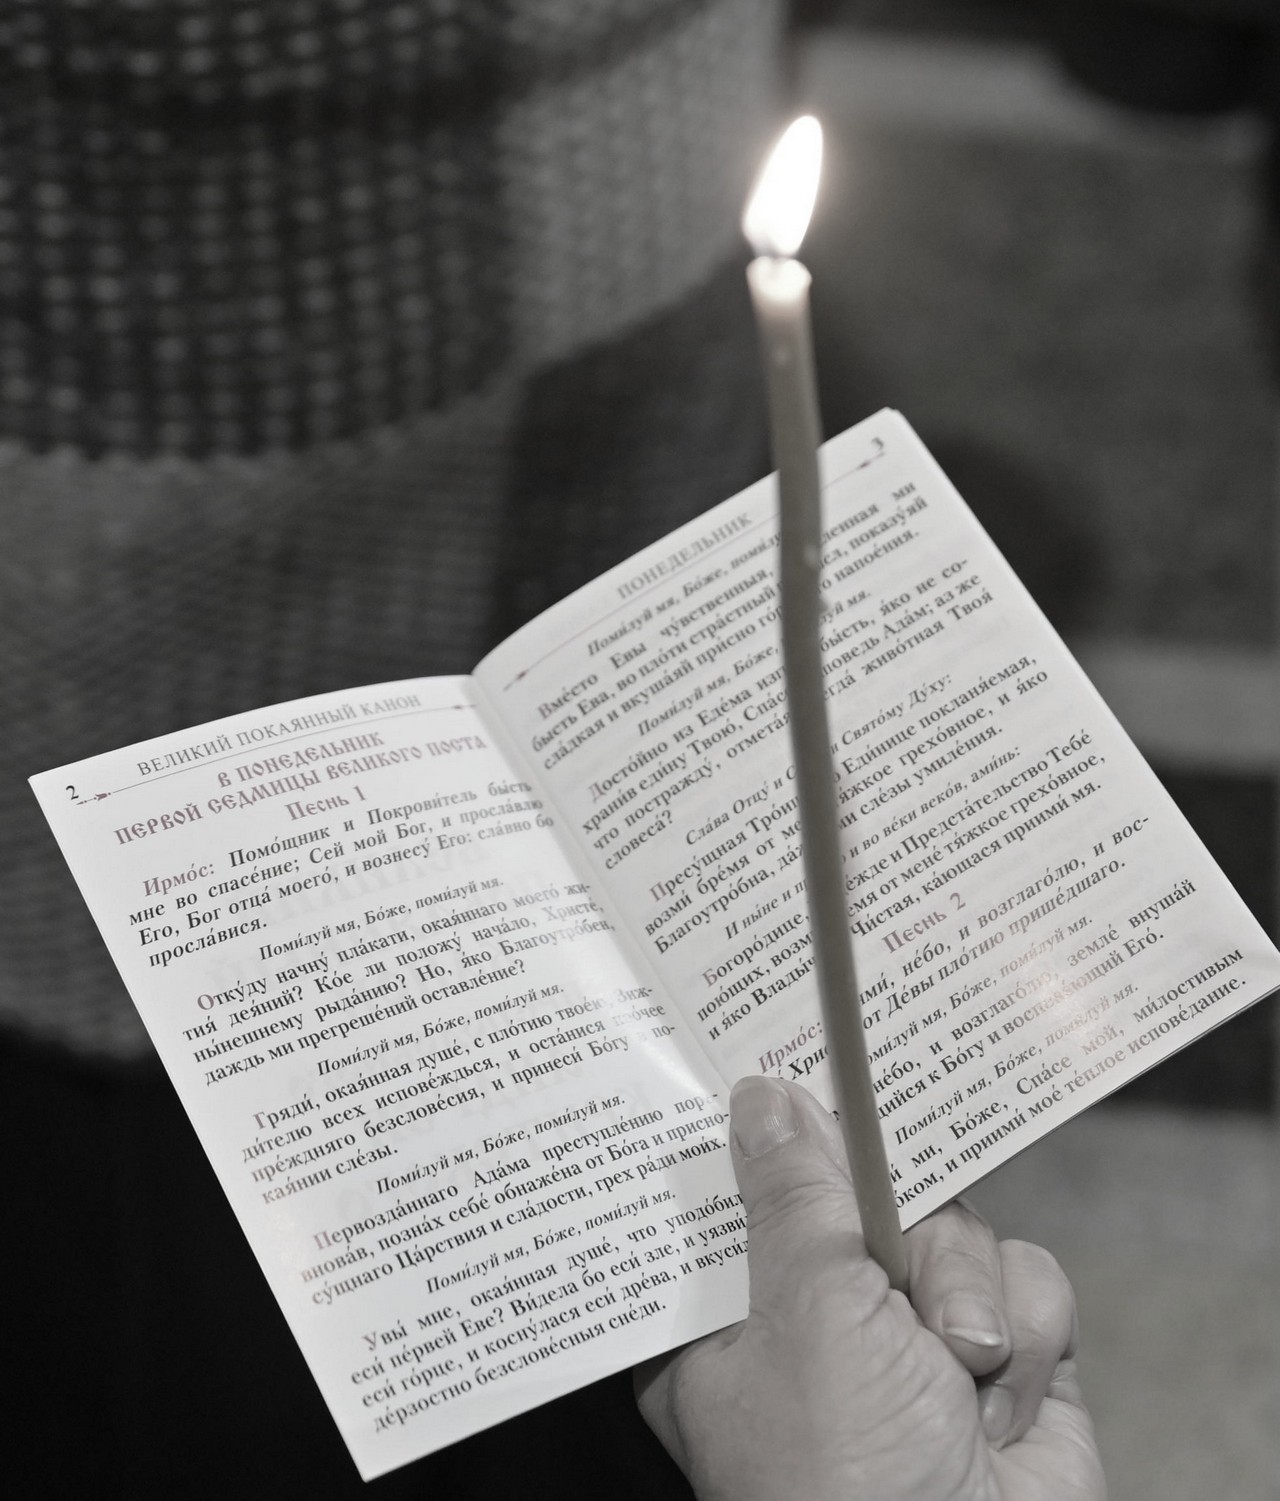 2
ВЕЛИКИЙ ПОКАЯННЫЙ КАНОН
В ПОНЕДЕЛЬНИК
ПЕРВОЙ СЕДМИЦЫ ВЕЛИКОГО ПОСТА
Песнь 1
Ирмо́с: Помо́щник и Покрови́тель бысть
мне во спасе́ние; Сей мой Бог, и просла́влю
Его, Бог отца́ моего́, и вознесу́ Его: сла́вно бо
просла́вися.
Поми́луй мя, Бо́же, поми́луй мя.
Отку́ду начну́ пла́кати, окая́ннаго моего́ жи-
тия́ дея́ний? Ко́е ли положу́ нача́ло, Христе́,
ны́нешнему рыда́нию? Но, я́ко Благоутро́бен,
даждь ми прегреше́ний оставле́ние?
Поми́луй мя, Бо́же, поми́луй мя.
Гряди́, окая́нная душе́, с пло́тию твое́ю, Зиж-
ди́телю всех испове́ждься, и оста́нися про́чее
пре́ждняго безслове́сия, и принеси́ Бо́гу в по-
кая́нии сле́зы.
Поми́луй мя, Бо́же, поми́луй мя.
Первозда́ннаго Ада́ма преступле́нию пор-
внова́в, позна́х себе́ обнаже́на от Бо́га и присно-
су́щнаго Ца́рствия и сла́дости, грех ра́ди мои́х.
Поми́луй мя, Бо́же, поми́луй мя.
Увы́ мне, окая́нная душе́, что уподо́бил
еси́ пе́рвей Еве? Ви́дела бо еси́ зле, и уязви́
еси́ го́рце, и косну́лася еси́ дре́ва, и вкуси́л
де́рзостно безслове́сныя сне́ди.
3
ПОНЕДЕЛЬНИК
Поми́луй мя, Бо́же, поми́лу
Вме́сто Евы чу́вственныя, ми
бысть Ева, во пло́ти стра́стный показу́яй
сла́дкая и вкуша́яй при́сно го́р напое́ния.
Поми́луй мя, Бо́же, мя.
Досто́йно из Еде́ма изг бы́сть, я́ко не со-
храни́в еди́ну Твою́, Спа́с Ада́м; аз же
что постражду́, отмета́я живо́тная Твоя́
словеса́?
Сла́ва Отцу́ и С и Свято́му Ду́ху:
Пресу́щная Тро́иц Еди́нице покланя́емая,
возми́ бре́мя от ме тя́жкое грехо́вное, и я́ко
Благоутро́бна, да́ж ми сле́зы умиле́ния.
И ны́не и п и во ве́ки веко́в, ами́нь:
Богоро́дице, и Предста́тельство Тебе́
пою́щих, возм от мене́ тя́жкое грехо́вное,
и я́ко Влады́ч Чи́стая, ка́ющася приими́ мя.
Песнь 2
Ирмо́с: не́бо, и возглаго́лю, и вос-
Хрис от Де́вы пло́тию прише́дшаго.
Бо́же, поми́луй мя.
не́бо, и возглаго́лю, земле́ внуша́й
к Бо́гу и воспева́ющий Его́.
Поми́луй мя, Бо́же, поми́луй мя.
ми, Бо́же, Спа́се мой, ми́лостивым
о́ком, и приими́ мое́ те́плое испове́дание.